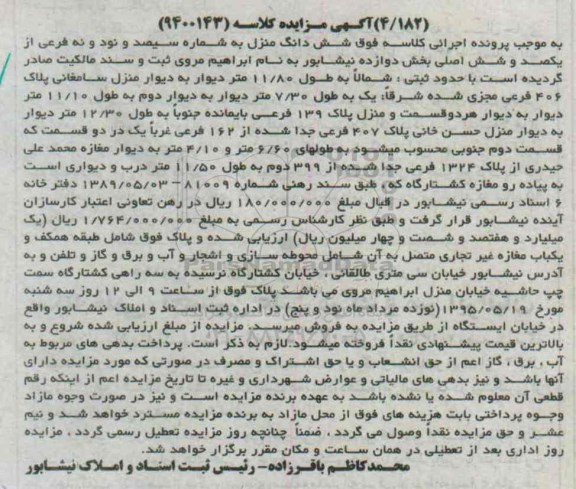 (۴/۱۸۲)آگهی مزایده کلاسه (۹۴۰۰۱۴۳)
به موجب پرونده اجرائی کلاسه فوق شش دانگ منزل به شماره سیصد و نود و نه فرعی از
یکصد و شش اصلی بخش دوازده نیشابور به نام ابراهیم مروی ثبت و سند مالکیت صادر
گردیده است با حدود ثبتی : شمالاً به طول ۱۱/۸۰ متر دیوار به دیوار منزل سامغانی پلاک
۴۰۶ فرعی مجزی شده شرقاً: یک به طول ۷/۳۰ متر دیوار به دیوار دوم به طول ۱۱/۱۰ متر
دیوار به دیوار هردوقسمت و منزل پلاک ۱۳۹ فرعی باقیمانده جنوباً به طول ۱۲/۳۰ متر دیوار
به دیوار منزل حسن خانی پلاک ۴۰۷ فرعی جدا شده از ۱۶۲ فرعی غرباً یک در دو قسمت که
قسمت دوم جنوبی محسوب میشود به طولهای ۶/۶۰ متر و ۴/۱۰ متر به دیوار مغازه محمد علی
حیدری از پلاک ۱۳۲۴ فرعی جدا شده از ۳۹۹ دوم به طول ۱۱/۵۰ متر درب و دیواری است
به پیاده رو مغازه کشتارگاه که ، طبق سند رهنی شماره ۸۱۰۰۹ – ۱۳۸۹/۰۵/۰۳ دفتر خانه
۶ اسناد رسمی نیشابور در قبال مبلغ ۱۸۰/۰۰۰/۰۰۰ ریال در رهن تعاونی اعتبار کارسازان
آینده نیشابور قرار گرفت و طبق نظر کارشناس رسمی به مبلغ ۱/۷۶۴/۰۰۰/۰۰۰ ریال (یک
میلیارد و هفتصد و شصت و چهار میلیون ریال) ارزیابی شده و پلاک فوق شامل طبقه همکف و
یکباب مغازه غیر تجاری متصل به آن شامل محوطه سازی و اشجار و آب و برق و گاز و تلفن و به
آدرس نیشابور خیابان سی متری طالقانی ، خیابان کشتارگاه نرسیده به سه راهی کشتارگاه سمت
چپ حاشیه خیابان منزل ابراهیم مروی می باشد پلاک فوق از ساعت ۹ الی ۱۲ روز سه شنبه
مورخ ۱۳۹۵/۰۵/۱۹(نوزده مرداد ماه نود و پنج) در اداره ثبت اسناد و املاک نیشابور واقع
در خیابان ایستگاه از طریق مزایده به فروش میرسد. مزایده از مبلغ ارزیابی شده شروع و به
بالاترین قیمت پیشنهادی نقداً فروخته میشود.لازم به ذکر است. پرداخت بدهی های مربوط به
آب ، برق ، گاز اعم از حق انشعاب و یا حق اشتراک و مصرف در صورتی که مورد مزایده دارای
آنها باشد و نیز بدهی های مالیاتی و عوارض شهرداری و غیره تا تاریخ مزایده اعم از اینکه رقم
قطعی آن معلوم شده یا نشده باشد به عهده برنده مزایده است و نیز در صورت وجود مازاد
وجوه پرداختی بابت هزینه های فوق از محل مازاد به برنده مزایده مسترد خواهد شد و نیم
عشر و حق مزایده نقداً وصول می گردد ، ضمناً چنانچه روز مزایده تعطیل رسمی گردد ، مزایده
روز اداری بعد از تعطیلی در همان ساعت و مکان مقرر برگزار خواهد شد.
محمدکاظم باقرزاده- رئیس ثبت اسناد و املاک نیشابور